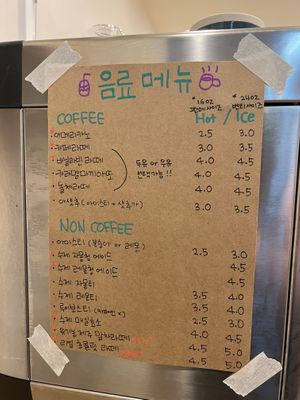 음료 메뉴
*16oz *24oz
COFFEE Hot / Ice
아메리카노 2.5 3.0
카페라떼 3.0 3.5
바닐라빈 라떼 4.0 4.5
두유 or 우유
카라멜마끼아또 4.0 4.5
변경가능!!
돌체라떼 4.0 4.5
아샷추 (아이스티+샷추가) 3.0 3.5
NON COFFEE
아이스티 (복숭아 or 레몬) 2.5 3.0
수제 자몽청 에이드 4.5
수제 레몬청 에이드 4.5
수제 자몽티 4.5
수제 레몬티 3.5 4.0
루이보스티 3.5 4.0
수제 매실효소 2.5 3.0
유기농 제주 말차라떼 4.0 4.5
리얼 초콜릿 라떼 4.5 5.0
4.5 5.0